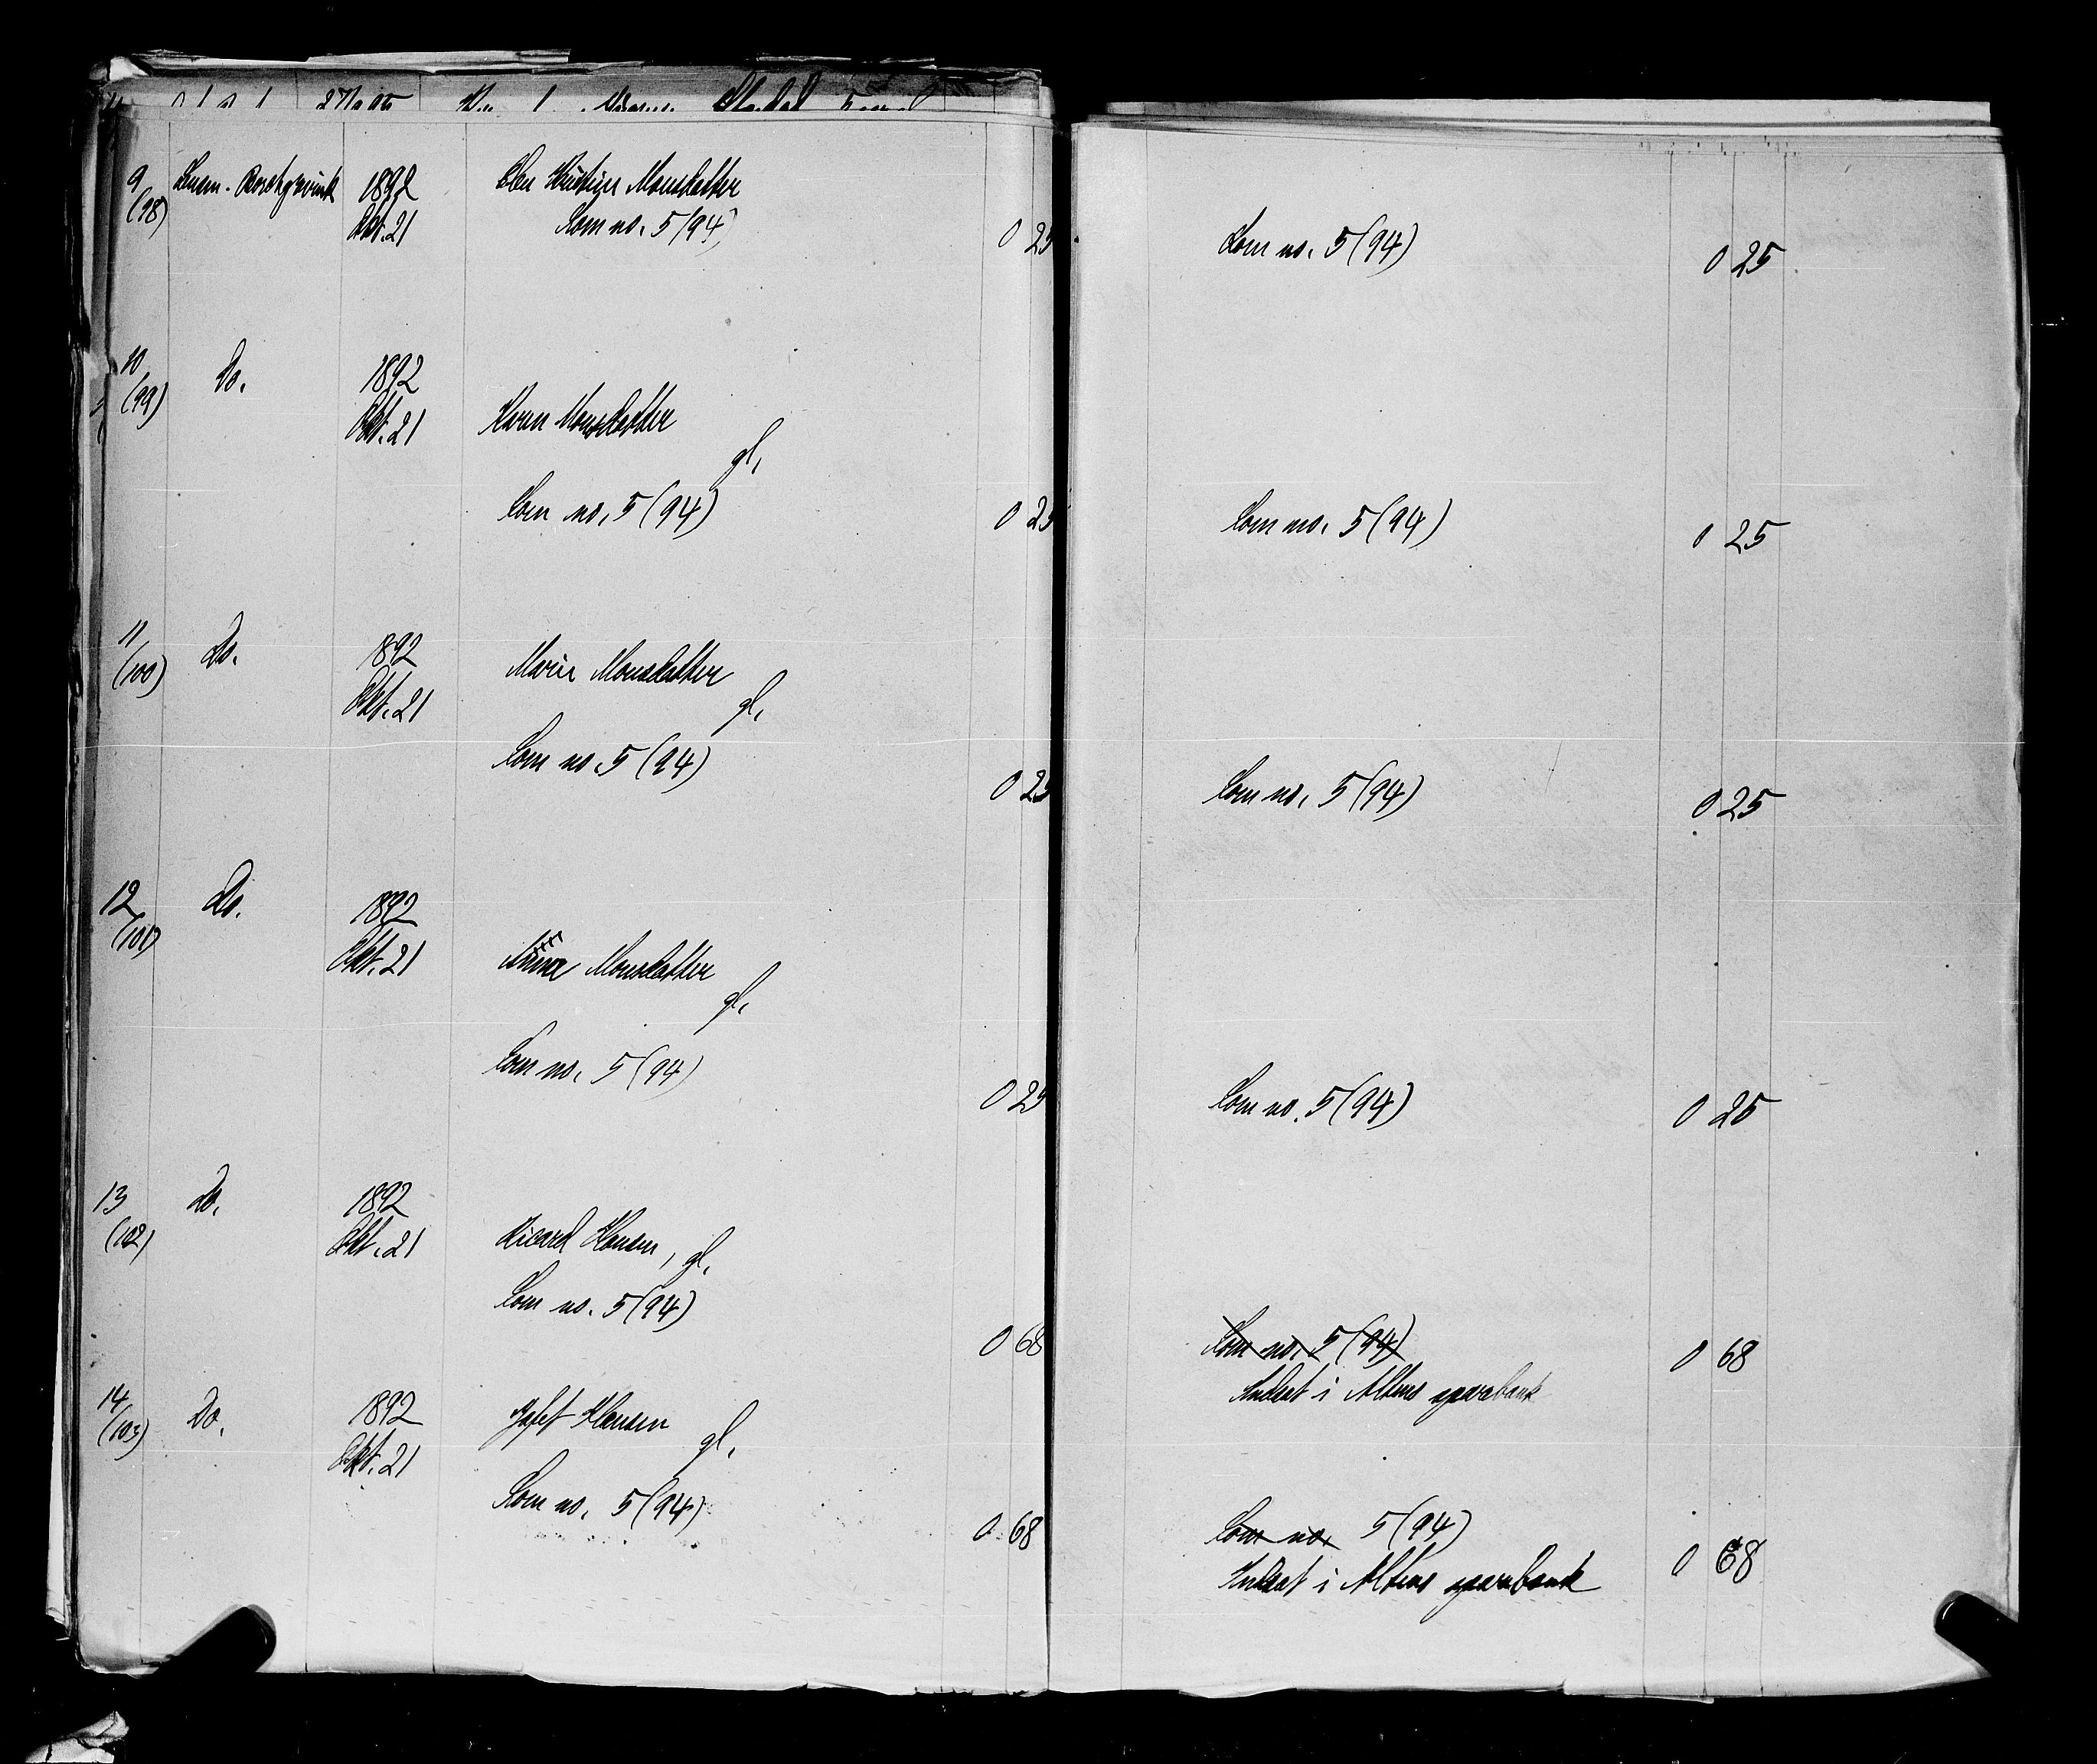 9
(98)
Lensm. Boschgrevink
1892
Okt. 21
Elen Kristine Monsdatter
Som no. 5 (94)
0 25
Som no. 5 (94)
0 25
10
(99)
Do.
1892
Okt. 21
Karen Monsdatter
gl.
Som no. 5 (94)
0 25
Som no. 5 (94)
0 25
11
(100)
Do.
1892
Okt. 21
Marie Monsdatter
gl.
Som no. 5 (94)
0 25
Som no. 5 (94)
0 25
12
(101)
Do.
1892
Okt. 21
Anna Monsdatter
gl.
Som no. 5 (94)
0 25
Som no. 5 (94)
0 25
13
(102)
Do.
1892
Okt. 21
Ricard Hansen, gl.
Som no. 5 (94)
0 68
Som no. 5 (94)
Indsat i Altens sparebank
0 68
14
(103)
Do.
1892
Okt. 21
Jafet Hansen
gl.
Som no. 5 (94)
0 68
Som no. 5 (94)
Indsat i Altens sparebank
0 68